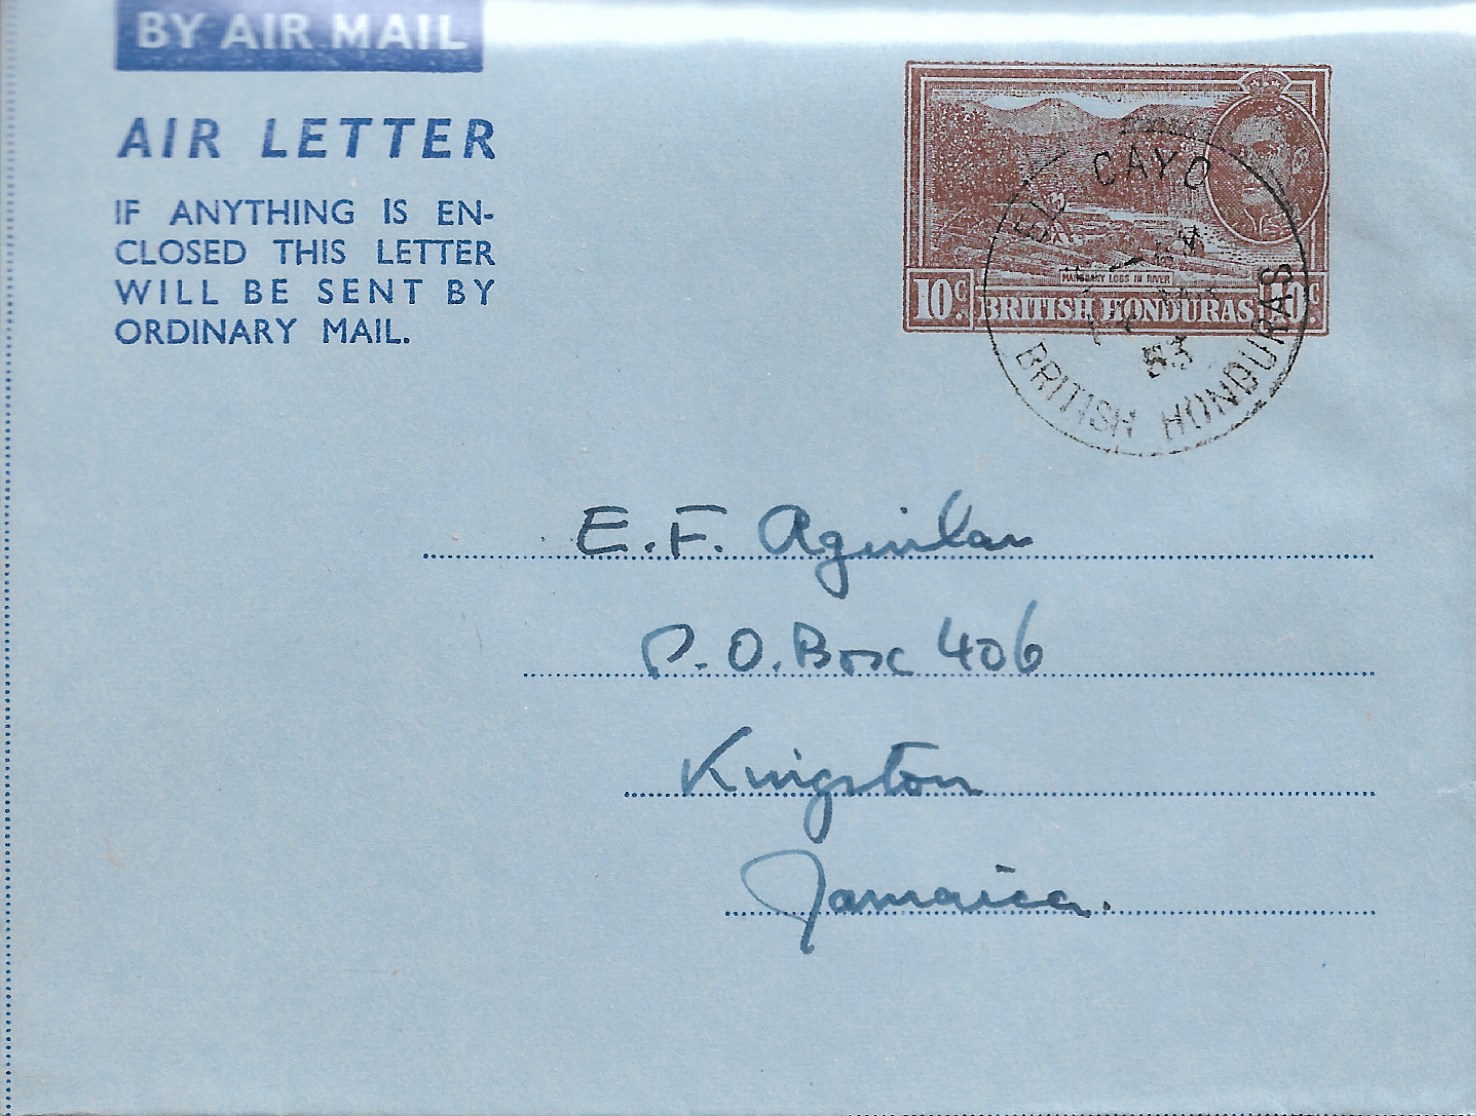 BY AIR MAIL
AIR LETTER
IF ANYTHING IS EN-
CLOSED THIS LETTER
WILL BE SENT BY
ORDINARY MAIL.
MAHOGANY LOGS IN RIVER
10c. BRITISH HONDURAS 10c.
EL CAYO
53
BRITISH HONDURAS
E. F. Aguilar
P. O. Box 406
Kingston
Jamaica.